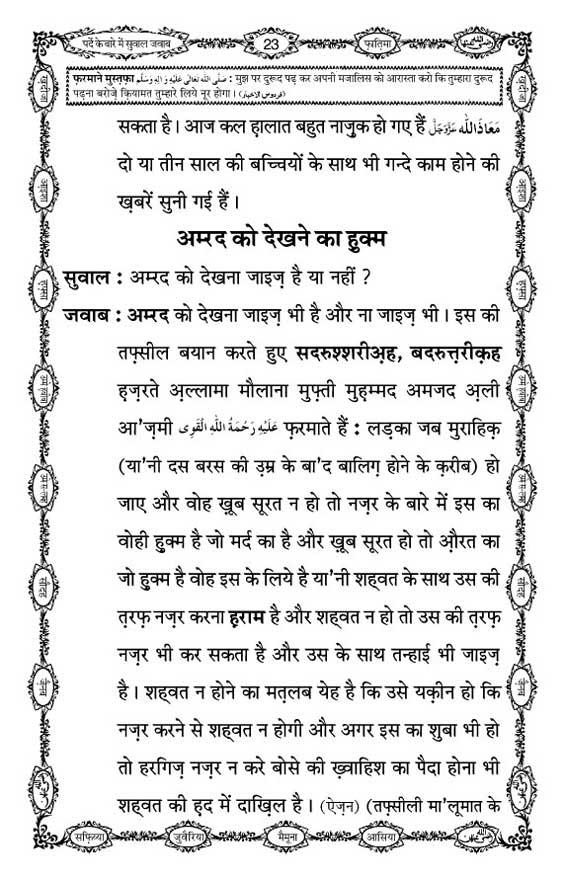 पर्दे के बारे में सुवाल जवाब
23
फ़ातिमा
फ़रमाने मुस्तफ़ा صَلَّى اللّٰهُ تَعَالٰى عَلَيْهِ وَاٰلِهٖ وَسَلَّم : मुझ पर दुरूद पढ़ कर अपनी मजालिस को आरास्ता करो कि तुम्हारा दुरूद
पढ़ना बरोज़े क़ियामत तुम्हारे लिये नूर होगा। (فردوس الاخبار)
सकता है। आज कल ह़ालात बहुत नाज़ुक हो गए हैं مَعَاذَاللّٰه عَزَّوَجَلَّ
दो या तीन साल की बच्चियों के साथ भी गन्दे काम होने की
ख़बरें सुनी गई हैं।
अम्रद को देखने का ह़ुक्म
सुवाल : अम्रद को देखना जाइज़ है या नहीं ?
जवाब : अम्रद को देखना जाइज़ भी है और ना जाइज़ भी। इस की
तफ़्सील बयान करते हुए सदरुश्शरीअ़ह, बदरुत़्त़रीक़ह
ह़ज़रते अ़ल्लामा मौलाना मुफ़्ती मुह़म्मद अमजद अ़ली
आ'ज़मी عَلَيْهِ رَحْمَةُ اللّٰهِ الْقَوِى फ़रमाते हैं : लड़का जब मुराहिक़
(या'नी दस बरस की उ़म्र के बा'द बालिग़ होने के क़रीब) हो
जाए और वोह ख़ूब सूरत न हो तो नज़र के बारे में इस का
वोही ह़ुक्म है जो मर्द का है और ख़ूब सूरत हो तो औ़रत का
जो ह़ुक्म है वोह इस के लिये है या'नी शह्वत के साथ उस की
त़रफ़ नज़र करना ह़राम है और शह्वत न हो तो उस की त़रफ़
नज़र भी कर सकता है और उस के साथ तन्हाई भी जाइज़
है। शह्वत न होने का मत़लब येह है कि उसे यक़ीन हो कि
नज़र करने से शह्वत न होगी और अगर इस का शुबा भी हो
तो हरगिज़ नज़र न करे बोसे की ख़्वाहिश का पैदा होना भी
शह्वत की ह़द में दाख़िल है। (ऐज़न) (तफ़्सीली मा'लूमात के
सफ़िय्या
जुवैरिया
मैमूना
आसिया